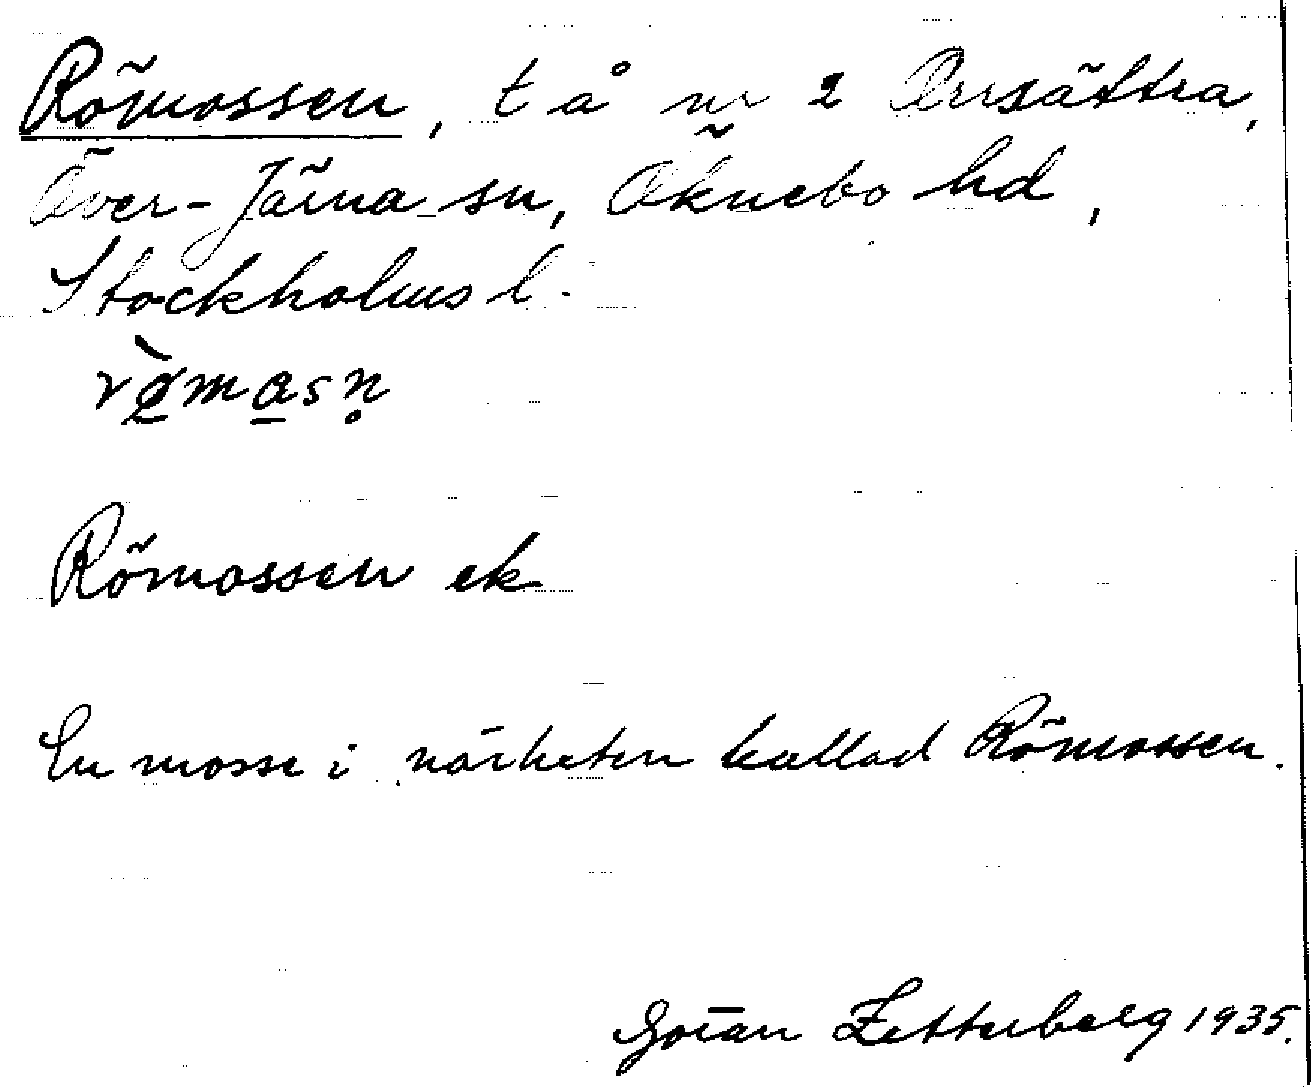 Römossen, t å nr 2 Ansättra,
Över-Järna sn, Öknebo hd,
Stockholms l.
Römossen ek
En mosse i närheten kallad Römossen.
Göran Zetterberg 1935.